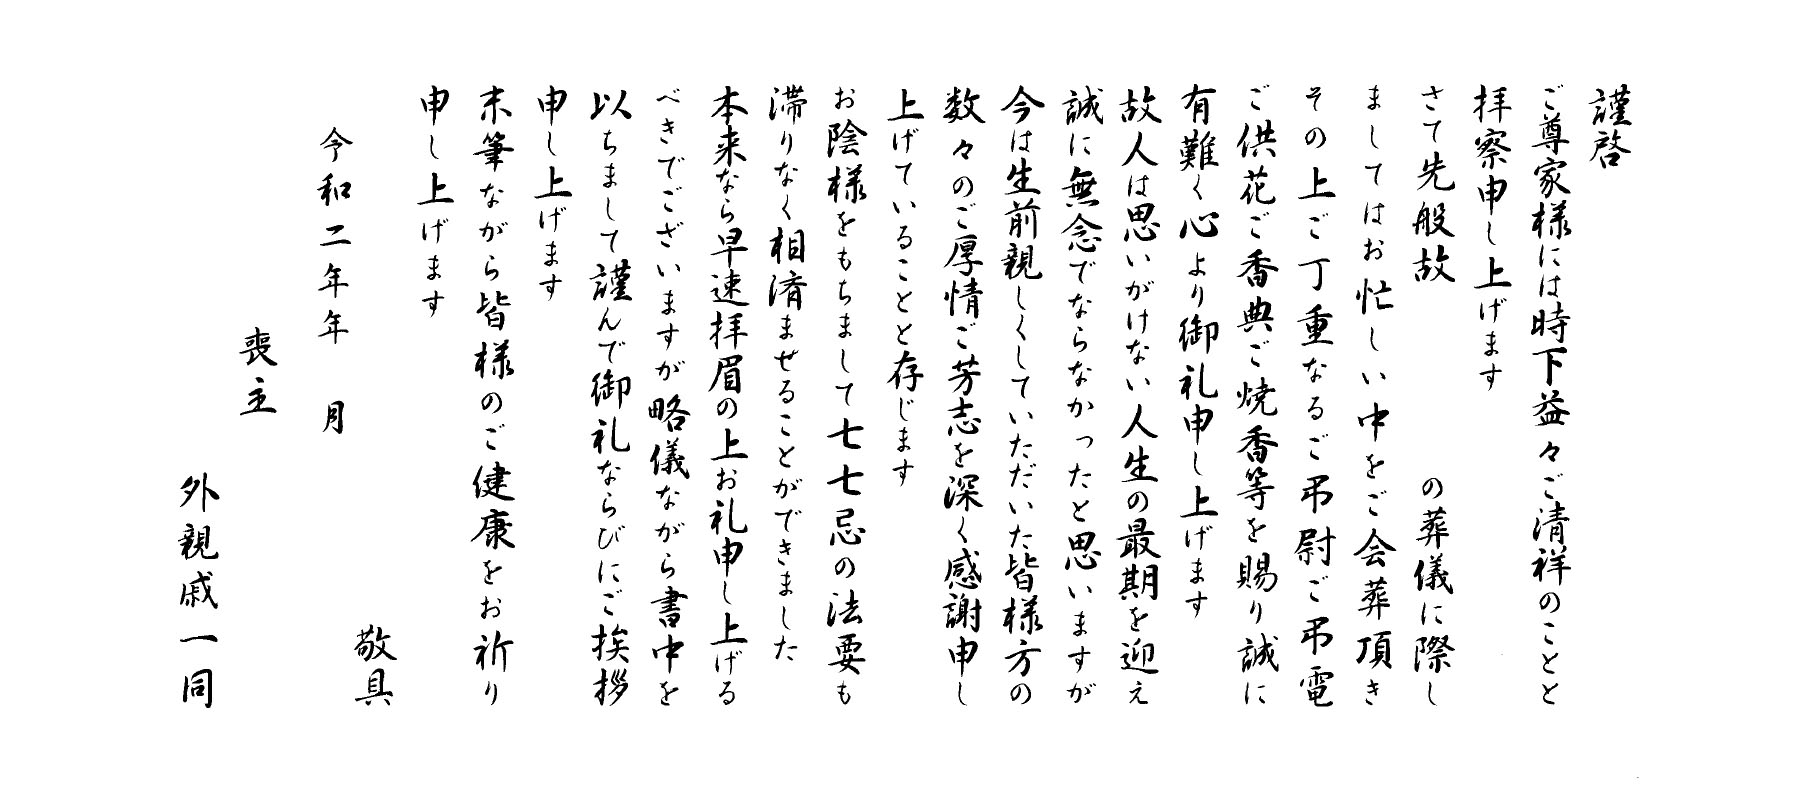 謹啓
ご尊家様には時下益々ご清祥のことと
拝察申し上げます
さて先般故　の葬儀に際し
ましてはお忙しい中をご会葬頂き
その上ご丁重なるご弔慰ご弔電
ご供花ご香典ご焼香等を賜り誠に
有難く心より御礼申し上げます
故人は思いがけない人生の最期を迎え
誠に無念でならなかったと思いますが
今は生前親しくしていただいた皆様方の
数々のご厚情ご芳志を深く感謝申し
上げていることと存じます
お陰様をもちまして七七忌の法要も
滞りなく相済ませることができました
本来なら早速拝眉の上お礼申し上げる
べきでございますが略儀ながら書中を
以ちまして謹んで御礼ならびにご挨拶
申し上げます
末筆ながら皆様のご健康をお祈り
申し上げます
敬具
令和二年年　月
喪主
外親戚一同